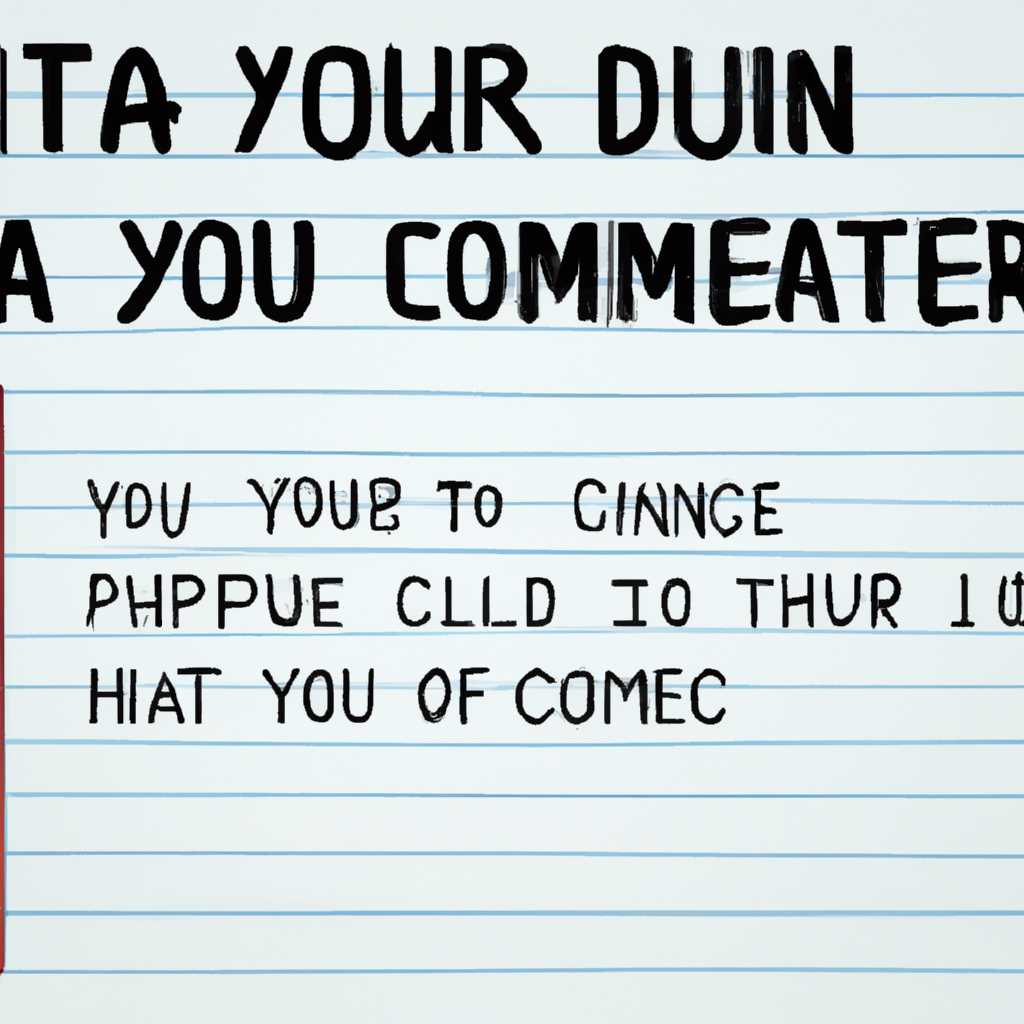 ITA YOUR DUIN
A YOU COMMEATER
YOU YOUB TO CINNCE
PHPPUE CLLD IO THUR I
HIAT YOU OF COMEC